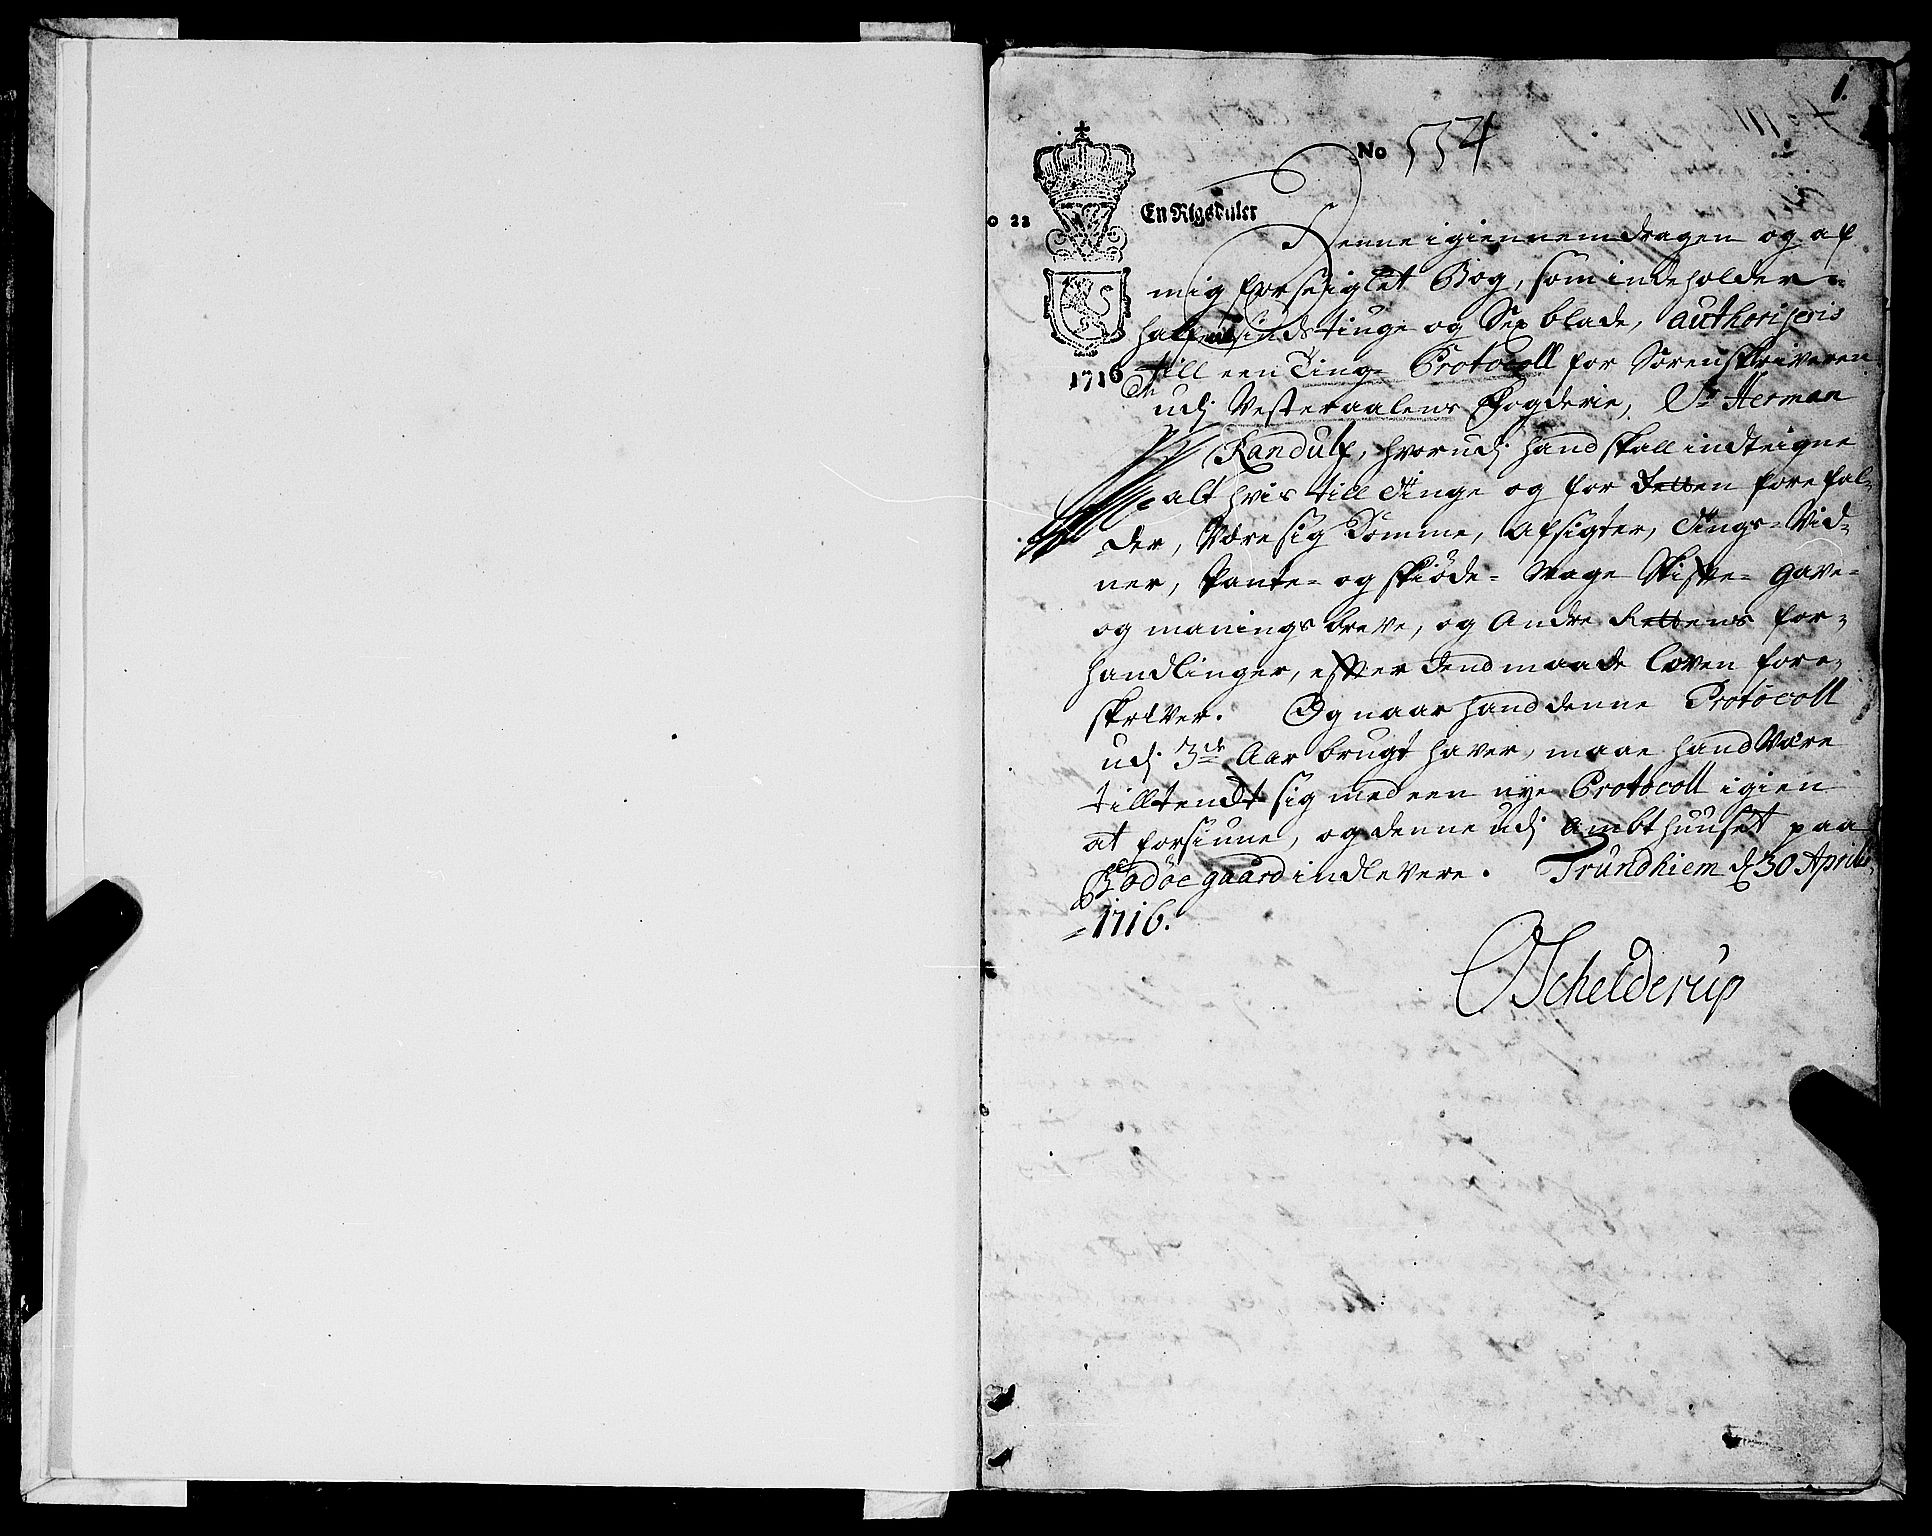 1.
No 534
o 22
En Rigsdaler
Denne igiennemdragen og af
mig forseiglet Bog, som indeholder
halfsindstiuge og Sex blade, authoriseris
1716
till een Ting- Protocoll for Sorenskriveren
udj Vesteraalens Fogderie, Sr Herman
Randulf, hvorudj hand skall indteigne
alt hvis till Tinge og for Retten forefal-
der, Være sig Domme, Afsigter, Tings-Vid-
ner, Pante- og skiøde- Mage Skifte- gave-
og manings breve, og Andre Rettens for-
handlinger, efter dend maade Loven fore-
skriver. Og naar hand denne Protocoll
udj 3de Aar brugt haver, maae hand Være
tilltendt sig med een nye Protocoll igien
at forsiune, og denne udj Ambthuuset paa
Bodøegaard indlevere. Trundhiem d 30 Aprilis
1716.
OSchelderup